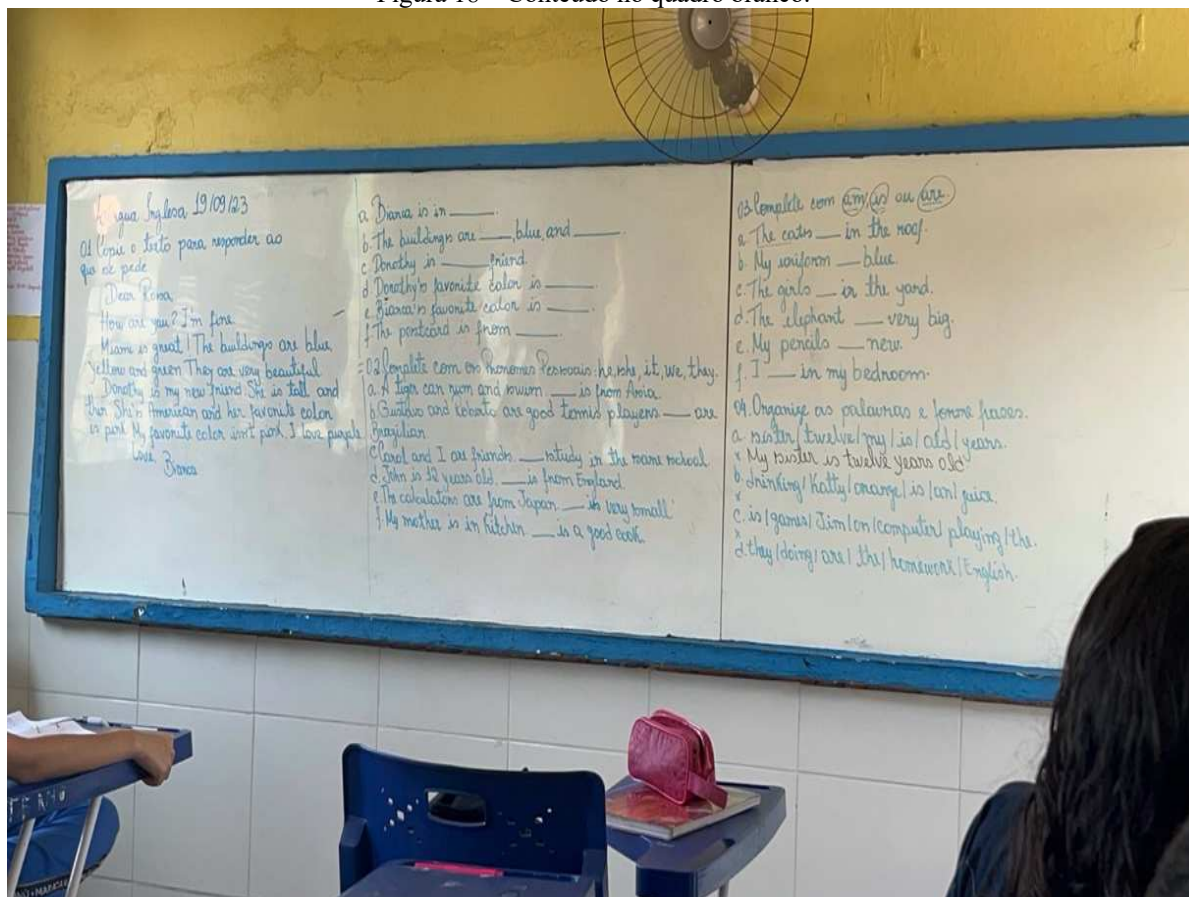 Figura 18 – Conteúdo no quadro branco.
Língua Inglesa 19/09/23
01 Copie o texto para responder ao
que se pede
Dear Rosa,
How are you? I'm fine.
Miami is great! The buildings are blue,
yellow and green They are very beautiful
Dorothy is my new friend She is tall and
thin She's American and her favorite color
is pink My favorite color isn't pink I love purple
Love,
Bianca
a Bianca is in ____.
b. The buildings are ____, blue, and ____.
c Dorothy is ____ friend
d Dorothy's favorite color is ____.
e. Bianca's favorite color is ____.
f The postcard is from ____.
02 Complete com os Pronomes Pessoais: he, she, it, we, they.
a. A tiger can run and swim. ____ is from Asia.
b Gustavo and Roberto are good tennis players ____ are
Brazilian
c Carol and I are friends. ____ study in the same school.
d. John is 12 years old. ____ is from England
e. The calculators are from Japan. ____ is very small
f. My mother is in kitchen ____ is a good cook.
03. Complete com am, is ou are.
a. The cats ____ in the roof.
b. My uniform ____ blue
c. The girls ____ in the yard.
d. The elephant ____ very big.
e. My pencils ____ new.
f. I ____ in my bedroom.
04. Organize as palavras e forme frases.
a. sister/twelve/my/is/old/years.
* My sister is twelve years old
b. drinking/Katty/orange/is/an/juice
*
c. is/games/Jim/on/computer/playing/the.
*
d. they/doing/are/the/homework/English.